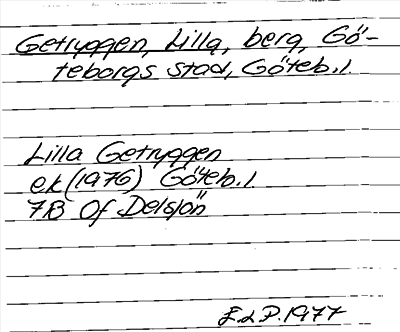 Getryggen, Lilla, berg, Gö-
teborgs stad, Göteb. l.
Lilla Getryggen
ek (1976) Göteb. l.
7B 0f Delsjön
E.d P. 1977